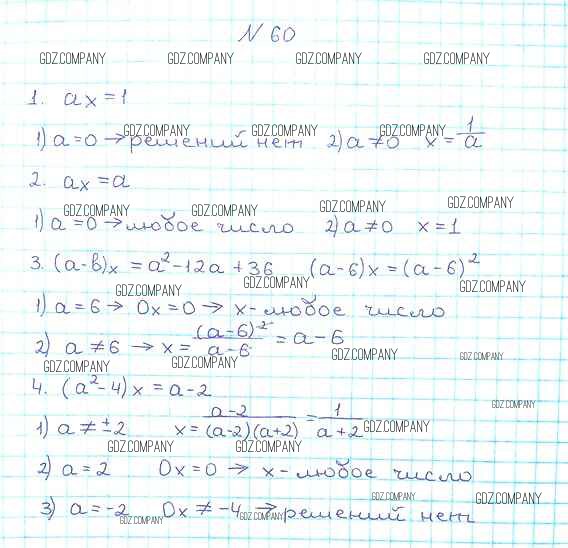 N 60
GDZ.COMPANY GDZ.COMPANY GDZ.COMPANY GDZ.COMPANY
1. ax = 1
GDZ.COMPANY GDZ.COMPANY GDZ.COMPANY
1) a = 0 → решений нет 2) a ≠ 0 x = 1/a
2. ax = a
GDZ.COMPANY GDZ.COMPANY GDZ.COMPANY GDZ.COMPANY
1) a = 0 → любое число 2) a ≠ 0 x = 1
3. (a-b)x = a² - 12a + 36 (a-6)x = (a-6)²
GDZ.COMPANY GDZ.COMPANY GDZ.COMPANY
1) a = 6 → 0x = 0 → x - любое число
2) a ≠ 6 → x = (a-6)²/a-6 = a-6
GDZ.COMPANY GDZ.COMPANY GDZ.COMPANY GDZ.COMPANY
4. (a² - 4)x = a - 2
GDZ.COMPANY
1) a ≠ ±2 x = a-2/(a-2)(a+2) = 1/a+2
GDZ.COMPANY
GDZ.COMPANY GDZ.COMPANY
2) a = 2 0x = 0 → x - любое число
GDZ.COMPANY GDZ.COMPANY
3) a = -2 0x ≠ -4 → решений нет
GDZ.COMPANY GDZ.COMPANY